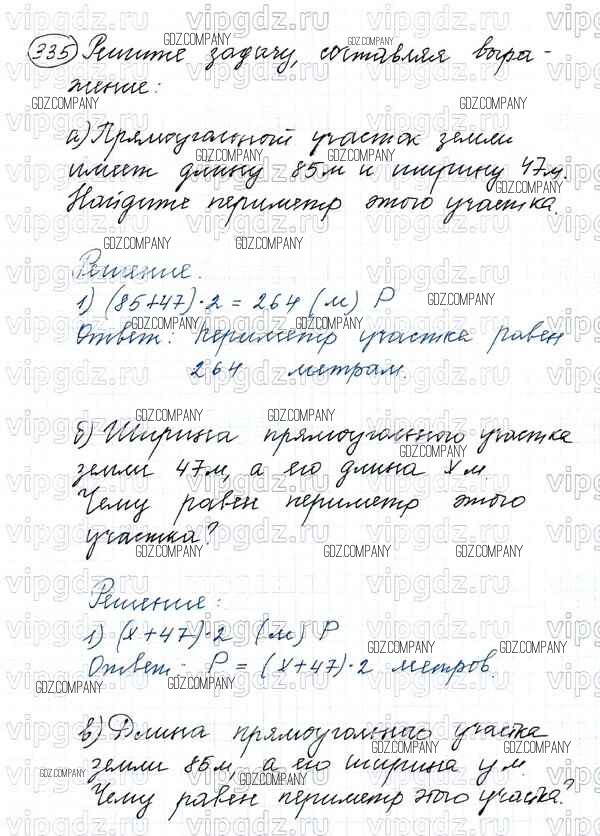 335 Решите задачу, составляя выра-
жение:
а) Прямоугольный участок земли
имеет длину 85 м и ширину 47 м.
Найдите периметр этого участка.
Решение.
1) (85+47)·2 = 264 (м) P
Ответ: периметр участка равен
264 метрам.
б) Ширина прямоугольного участка
земли 47 м, а его длина x м.
Чему равен периметр этого
участка?
Решение:
1) (x+47)·2 (м) P
Ответ: P = (x+47)·2 метров.
в) Длина прямоугольного участка
земли 85 м, а его ширина y м.
Чему равен периметр этого участка?